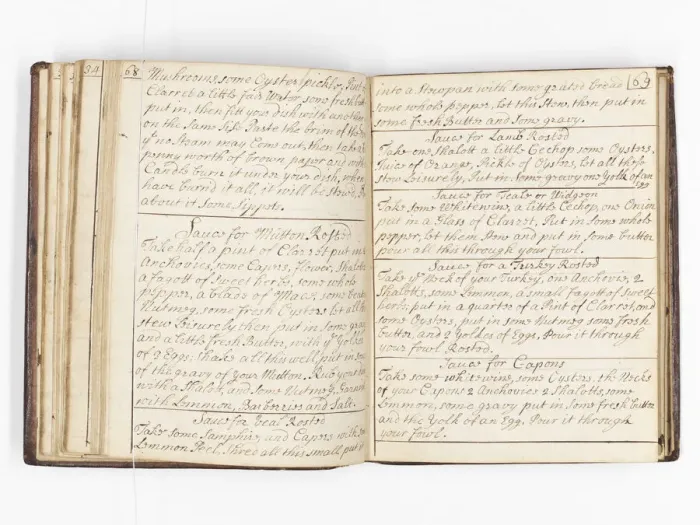 34
68
Mushrooms, some Oyster pickle, Pint of
Clarret a little fair Water some fresh
put in, then fitt you dish with another
on the Same Size Paste the brim of the
yt no Steam may Come out, then take
penny worth of brown paper and with
Candle burn it under your dish, when
have burnd it all, it will be Stewd,
about it Some Sippets.
Sauce for Mutton Rosted
Take half a pint of Claret put in
Anchovies, some Capers, flower, Shalotts
a fagott of Sweet herbs, some whole
pepper, a blade of Mace, some
Nutmeg, some fresh Oysters let all
stew Leisurely then put in some
and a little fresh Butter, with ye Yolks
of 2 Eggs: Shake all this well, put in some
of the gravy of your Mutton. Rub your
with a Shalott, and some Nutmeg,
with Lemmon, Barberies and Salt.
Sauce for Veal Rosted
Take some Samphire, and Capers with
Lemmon Peel, Shred all this small, put it
69
into a Stewpan with some grated bread
some whole pepper, let this Stew, then put in
some fresh Butter and Some gravy.
Sauce for Lamb Rosted
Take one Shalott a little Cechop some Oysters,
Juice of Orange, Pickle of Oysters, let all these
stew Leisurely, Put in some gravy one Yolk of an
Egg
Sauce for Teale or Widgeon
Take some Whitewine, a little Cechop, one Onion
put in a Glass of Clarret, Put in Some whole
pepper, let them Stew and put in some butter
pour all this through your fowl.
Sauce for a Turkey Rosted
Take ye Neck of your Turkey, one Anchovie, 2
Shalotts, some Lemmon, a small fagott of Sweet
herbs, put in a quarter of a Pint of Clarret, and
some Oysters, put in some Nutmeg some fresh
butter, and 2 Yolkes of Eggs, Pour it through
your fowl Rosted.
Sauce for Capons
Take some whitewine, some Oysters, the Necks
of your Capons 2 Anchovies 2 Shalotts, some
Lemmon, some gravy put in Some fresh butter
and the Yolk of an Egg. Pour it through
your fowl.